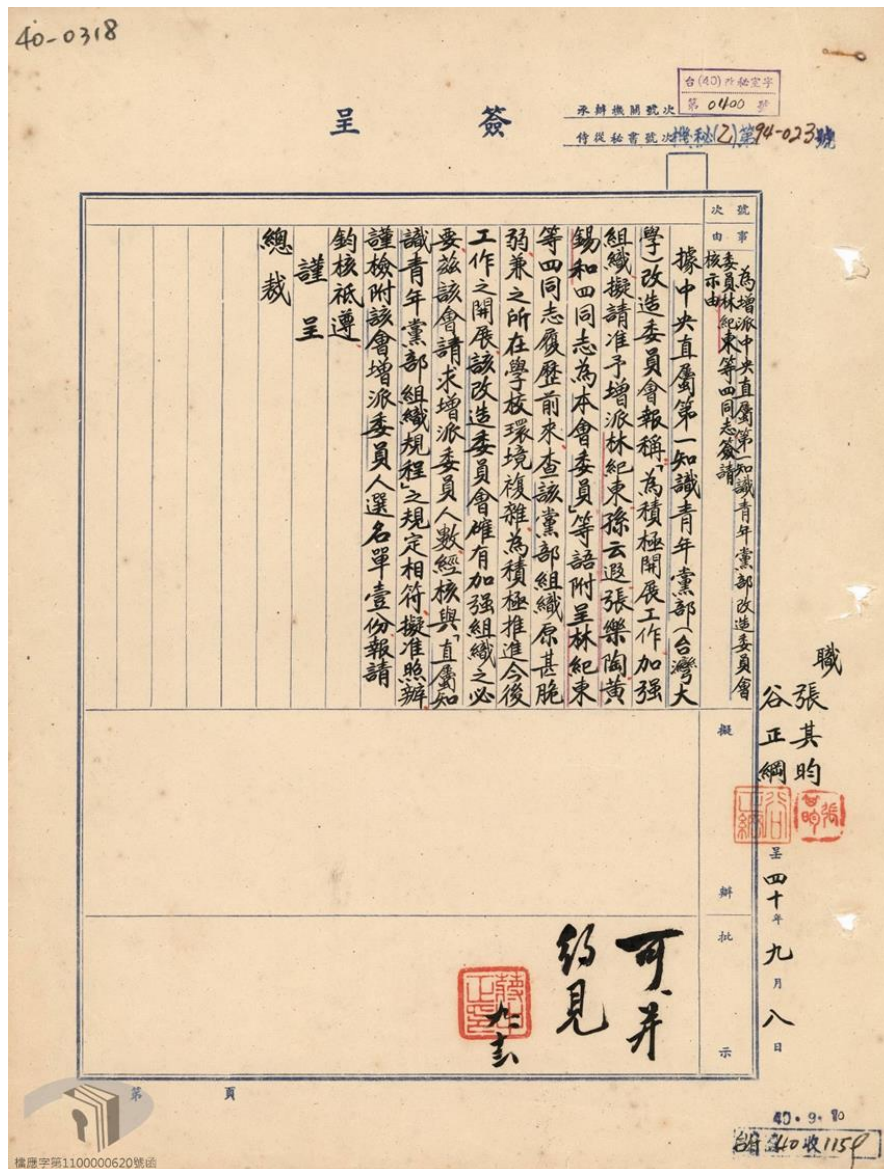 40-0318
簽呈
台(40)改秘室字
第0400號
承辦機關號次
侍從秘書號次機秘(乙)第94-023號
號次
事由
為增派中央直屬第一知識青年黨部改造委員會
委員林紀東等四同志簽請
核示由
據中央直屬第一知識青年黨部(台灣大
學)改造委員會報稱「為積極開展工作加强
組織擬請准予增派林紀東孫云遐張樂陶黃
錫和四同志為本會委員」等語附呈林紀東
等四同志履歷前來查該黨部組織原甚脆
弱兼之所在學校環境複雜為積極推進今後
工作之開展該改造委員會確有加强組織之必
要茲該會請求增派委員人數經核與「直屬知
識青年黨部組織規程」之規定相符擬准照辦
謹檢附該會增派委員人選名單壹份報請
鈞核祇遵
謹呈
總裁
職
張其昀
谷正綱
呈四十年九月八日
擬辦
批示
可、并
約見
第頁
40.9.10
40收1159
檔應字第1100000620號函